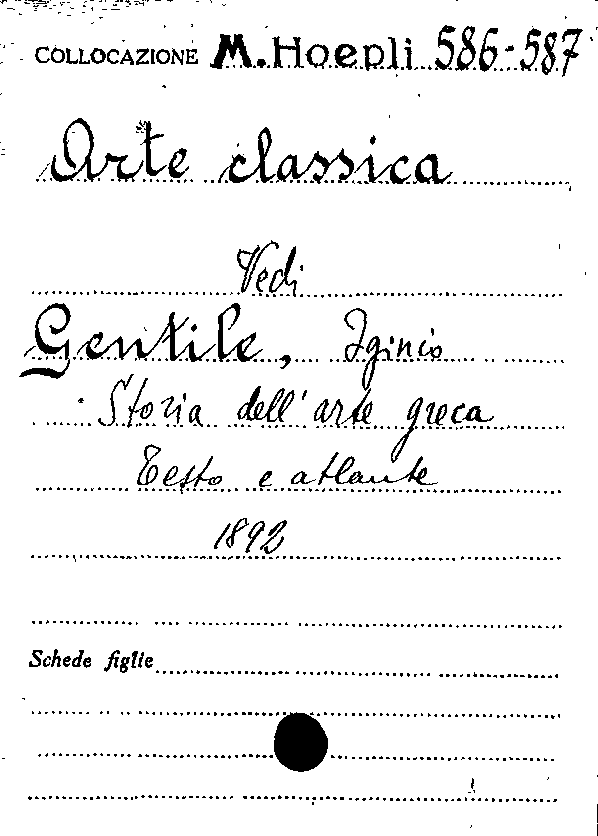 COLLOCAZIONE M. Hoepli 586-587
Arte classica
Vedi
Gentile, Iginio
Storia dell'arte greca
Testo e atlante
1892
Schede figlie